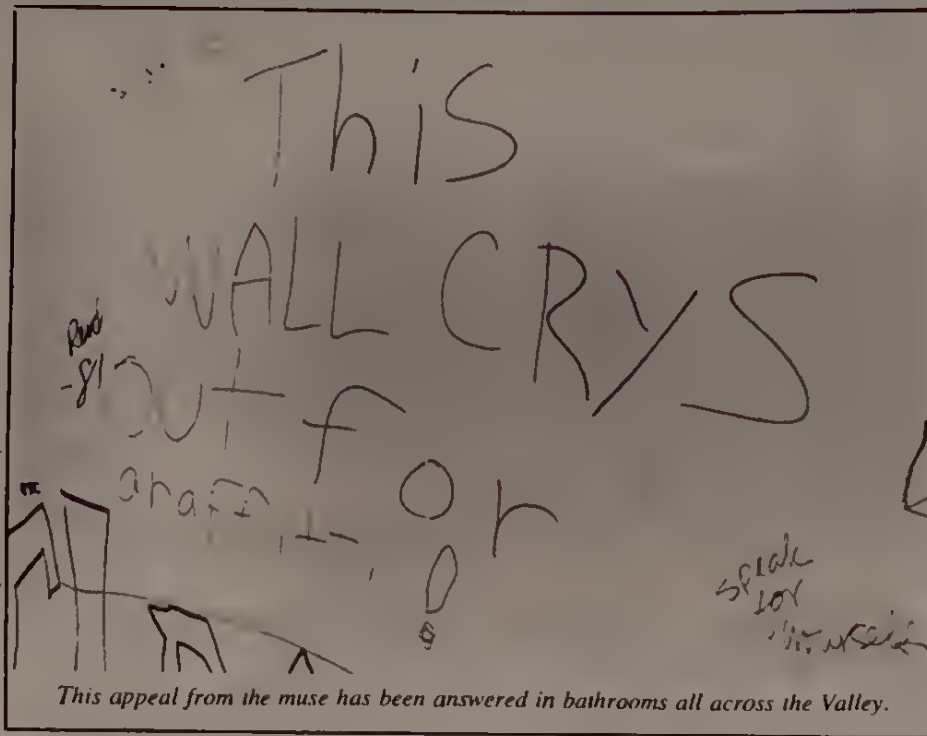 This
WALL CRYS
Out for
graffiti
!
-81
speak
for
yourself
This appeal from the muse has been answered in bathrooms all across the Valley.